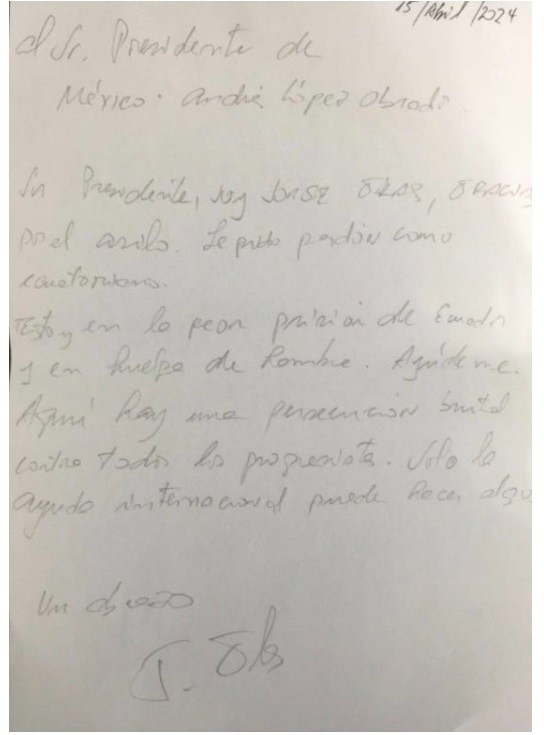 15/Abril/2024
Al Sr. Presidente de
México. Andrés López Obrador.
Sr Presidente, soy JORGE GLAS, GRACIAS
por el asilo. Le pido perdón como
ecuatoriano.
Estoy en la peor prisión de Ecuador
y en huelga de hambre. Ayúdeme.
Aquí hay una persecución brutal
contra todos los progresistas. Solo la
ayuda internacional puede hacer algo
Un abrazo
J. Glas